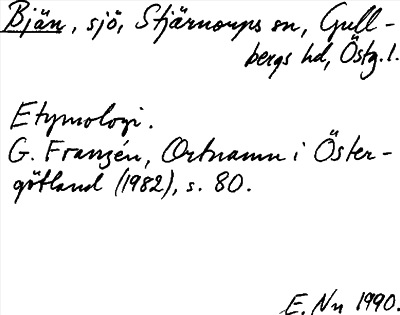 Bjän, sjö, Stjärnorps sn, Gull-
bergs hd, Östg.l.
Etymologi.
G. Franzén, Ortnamn i Öster-
götland (1982), s. 80.
E. Nn 1990.